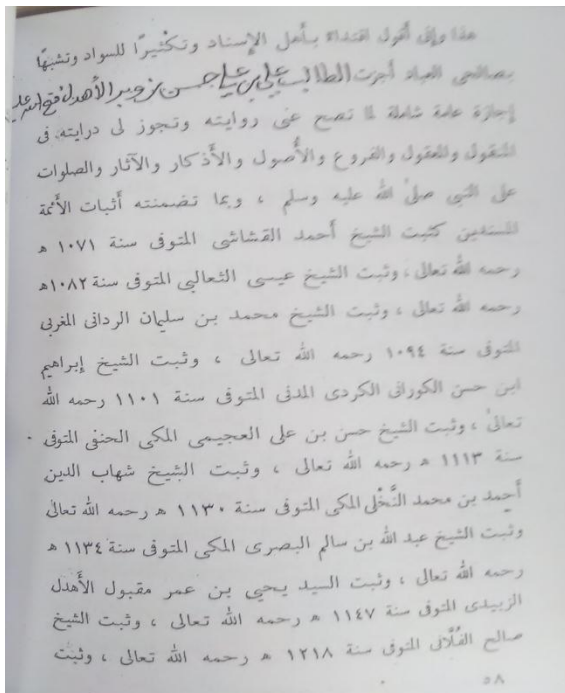 هذا وإنى أقول اقتداء بأهل الإسناد وتكثيرًا للسواد وتشبهًا
بصالحى العباد أجزت الطالب علي بن علي حسن زوبر الأهدل فتح الله عليه
إجازة عامة شاملة لما تصح عنى روايته وتجوز لى درايته فى
المنقول والمعقول والفروع والأصول والأذكار والآثار والصلوات
على النبى صلى الله عليه وسلم ، وبما تضمنته أثبات الأئمة
المسندين كثبت الشيخ أحمد القشاشى المتوفى سنة ١٠٧١ ه
رحمه الله تعالى ، وثبت الشيخ عيسى الثعالبى المتوفى سنة ١٠٨٢ه
رحمه الله تعالى ، وثبت الشيخ محمد بن سليمان الردانى المغربى
المتوفى سنة ١٠٩٤ رحمه الله تعالى ، وثبت الشيخ إبراهيم
ابن حسن الكورانى الكردى المدنى المتوفى سنة ١١٠١ رحمه الله
تعالى ، وثبت الشيخ حسن بن على العجيمى المكى الحنفى المتوفى
سنة ١١١٣ ه رحمه الله تعالى ، وثبت الشيخ شهاب الدين
أحمد بن محمد النَّخْلى المكى المتوفى سنة ١١٣٠ ه رحمه الله تعالى
وثبت الشيخ عبد الله بن سالم البصرى المكى المتوفى سنة ١١٣٤ ه
رحمه الله تعالى ، وثبت السيد يحيى بن عمر مقبول الأهدل
الزبيدى المتوفى سنة ١١٤٧ ه رحمه الله تعالى ، وثبت الشيخ
صالح الفُلَّانى المتوفى سنة ١٢١٨ ه رحمه الله تعالى ، وثبت
٥٨